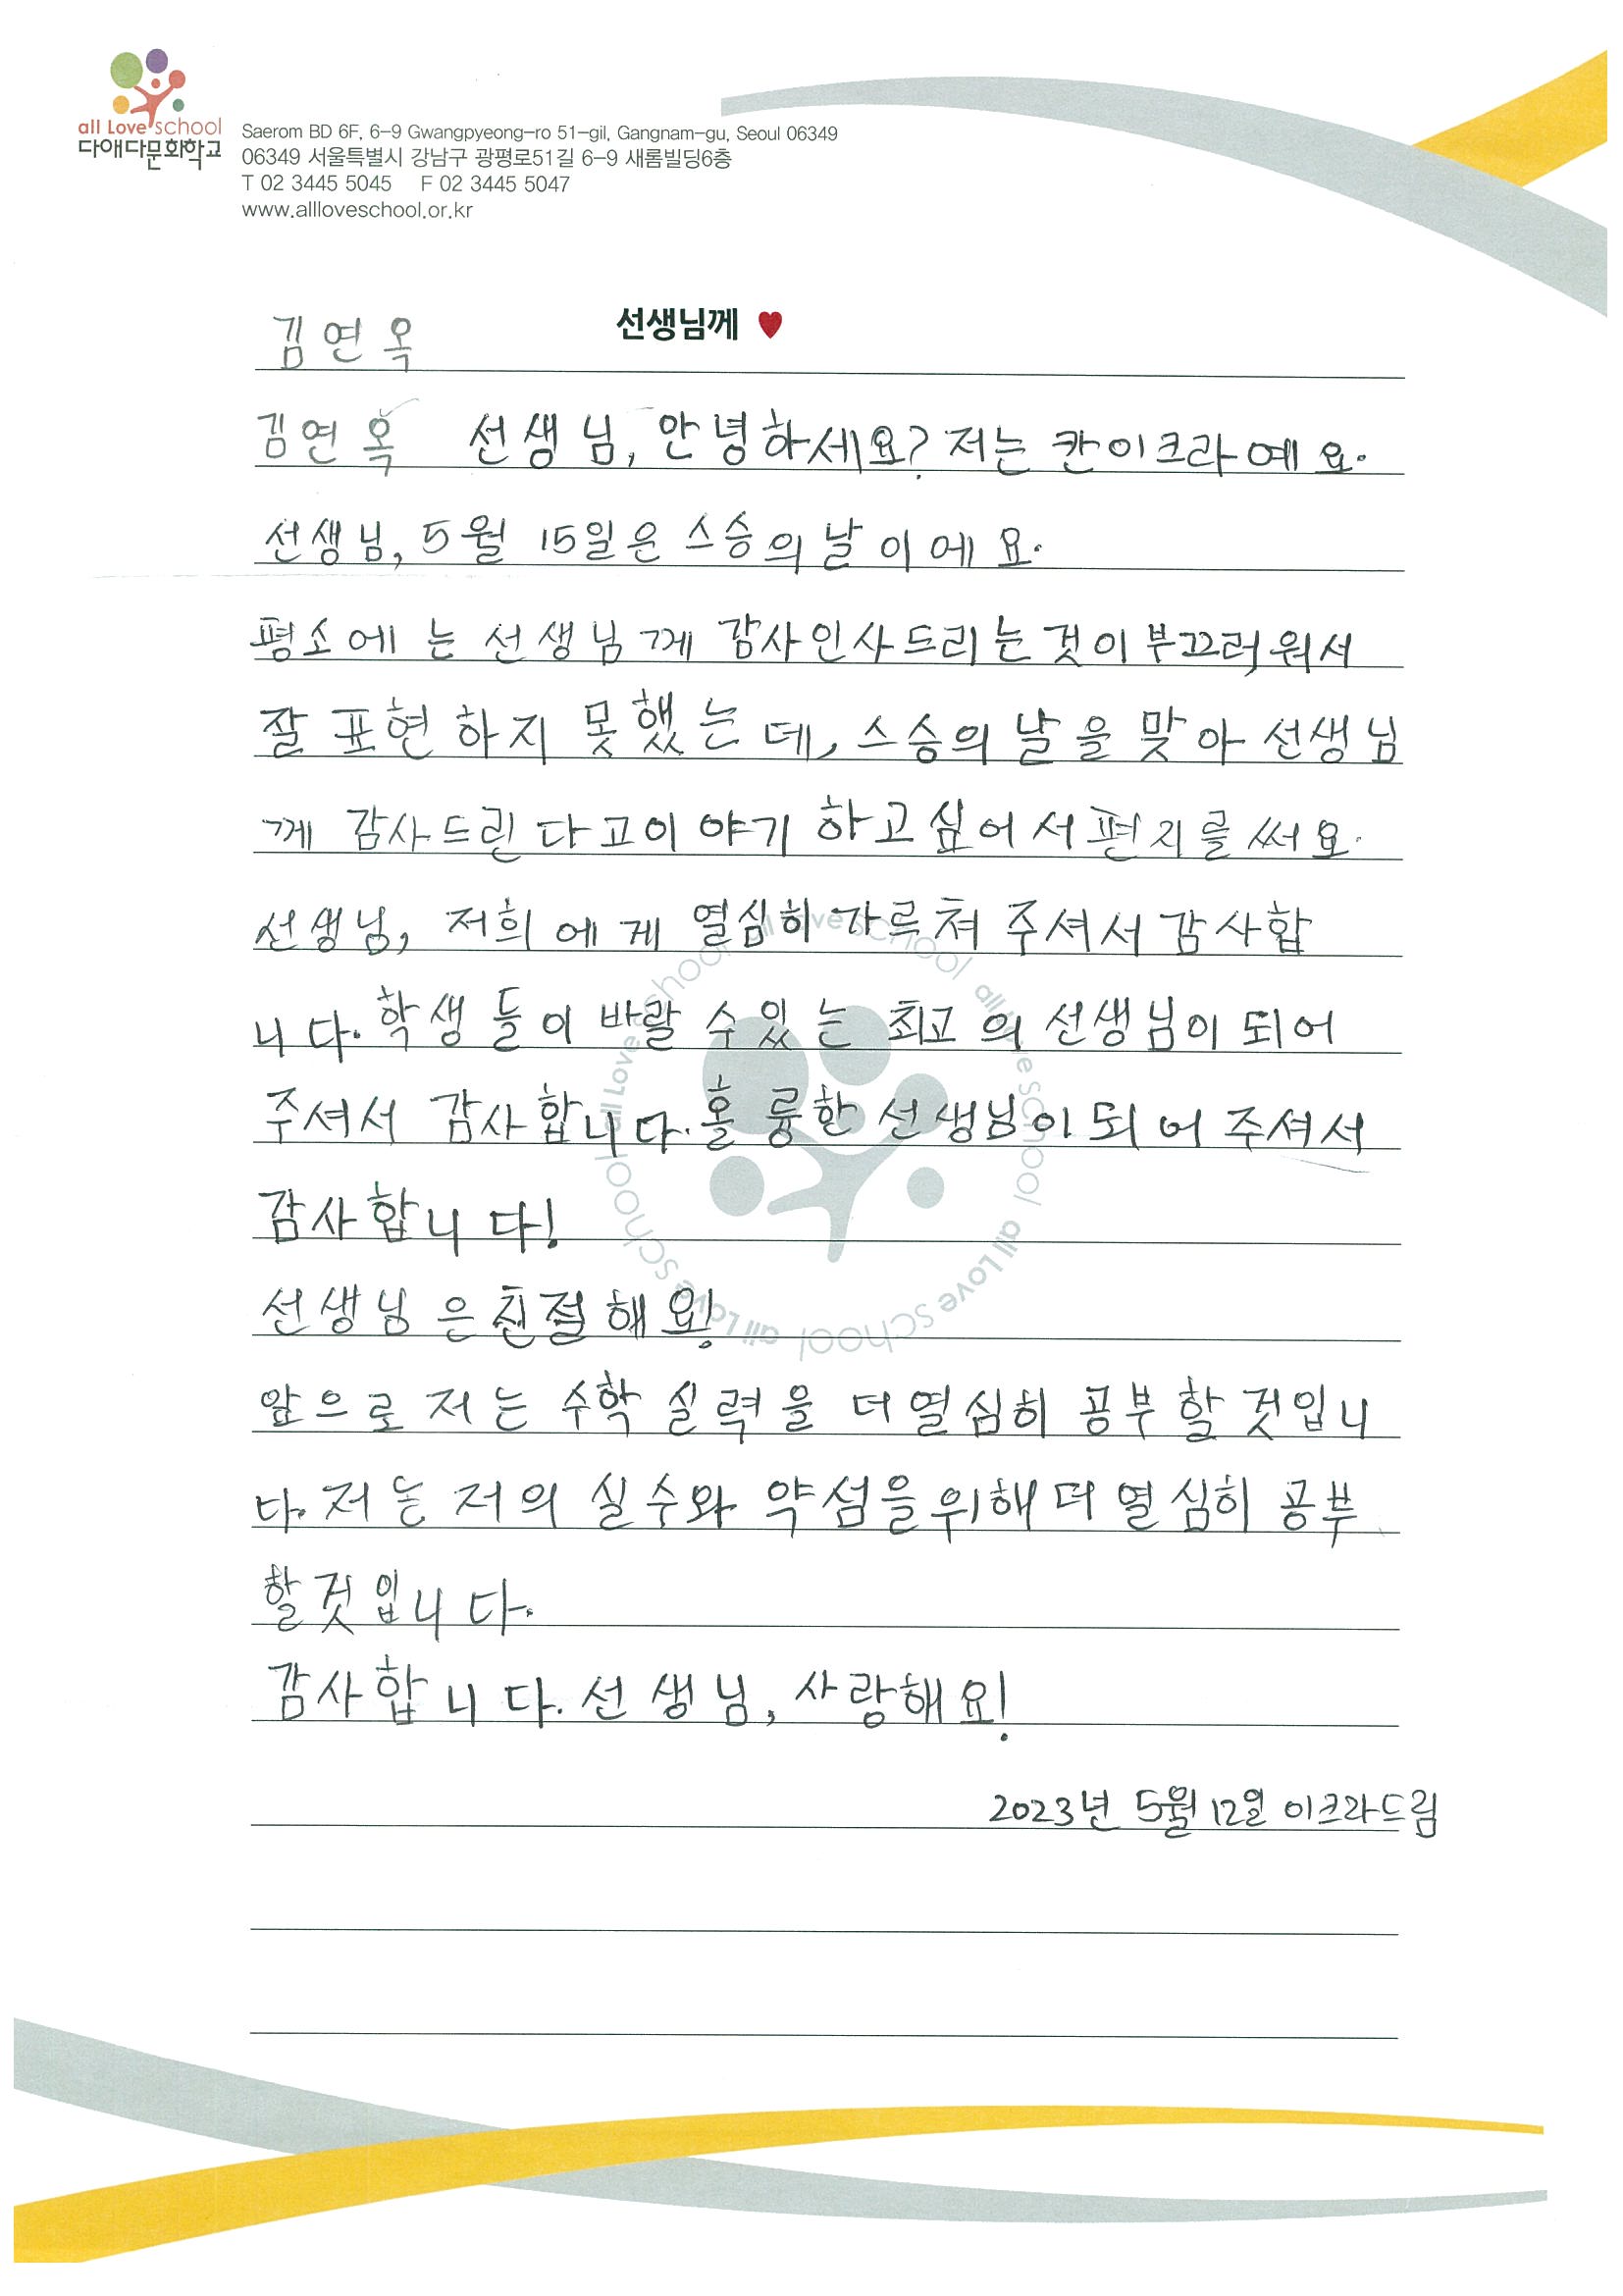 all Love school
다애다문화학교
Saerom BD 6F, 6-9 Gwangpyeong-ro 51-gil, Gangnam-gu, Seoul 06349
06349 서울특별시 강남구 광평로51길 6-9 새롬빌딩6층
T 02 3445 5045 F 02 3445 5047
www.allloveschool.or.kr
김연옥 선생님께 ♥
김연옥 선생님, 안녕하세요? 저는 칸이크라예요.
선생님, 5월 15일은 스승의날이에요.
평소에는 선생님께 감사인사드리는것이부끄러워서
잘 표현하지 못했는데, 스승의 날을 맞아 선생님
께 감사드린다고이야기 하고싶어서편지를써요.
선생님, 저희에게 열심히 가르쳐 주셔서 감사합
니다. 학생들이 바랄 수있는 최고의 선생님이 되어
주셔서 감사합니다. 훌륭한 선생님이되어 주셔서
감사합니다!
선생님은 친절해요!
앞으로 저는 수학 실력을 더열심히 공부할것입니
다. 저는 저의 실수와 약섬을위해 더 열심히 공부
할것입니다.
감사합니다. 선생님, 사랑해요!
2023년 5월 12일 이크라드림
all Love school all Love school all Love school all Love school all Love school